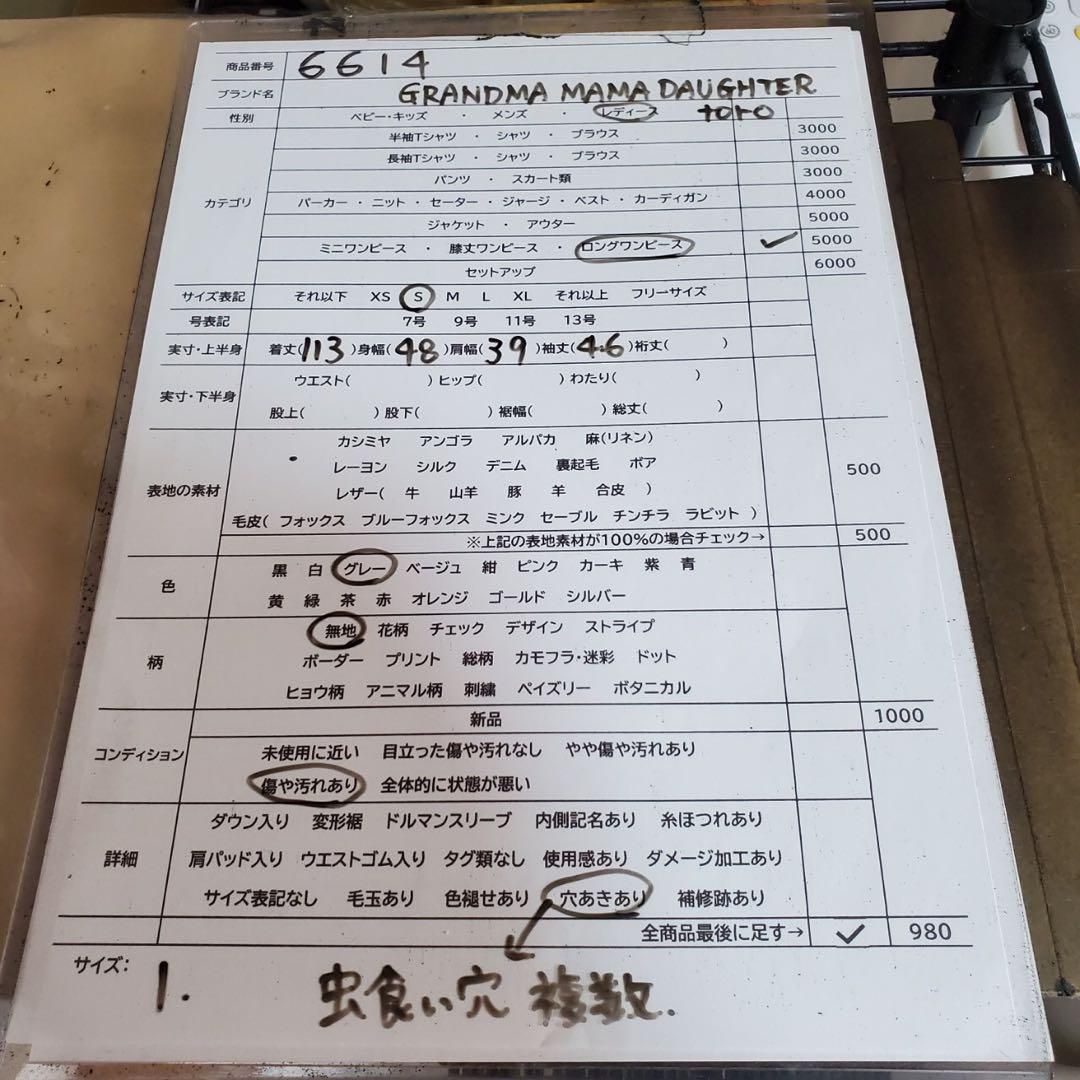 商品番号 6614
ブランド名 GRANDMA MAMA DAUGHTER
性別 ベビー・キッズ ・ メンズ ・ レディース toro
カテゴリ
半袖Tシャツ ・ シャツ ・ ブラウス 3000
長袖Tシャツ ・ シャツ ・ ブラウス 3000
パンツ ・ スカート類 3000
パーカー ・ ニット ・ セーター ・ ジャージ ・ ベスト ・ カーディガン 4000
ジャケット ・ アウター 5000
ミニワンピース ・ 膝丈ワンピース ・ ロングワンピース ✓ 5000
セットアップ 6000
サイズ表記 それ以下 XS S M L XL それ以上 フリーサイズ
号表記 7号 9号 11号 13号
実寸・上半身 着丈(113)身幅(48)肩幅(39)袖丈(46)裄丈( )
実寸・下半身
ウエスト( )ヒップ( )わたり( )
股上( )股下( )裾幅( )総丈( )
表地の素材
カシミヤ アンゴラ アルパカ 麻(リネン)
レーヨン シルク デニム 裏起毛 ボア 500
レザー( 牛 山羊 豚 羊 合皮 )
毛皮( フォックス ブルーフォックス ミンク セーブル チンチラ ラビット )
※上記の表地素材が100%の場合チェック→ 500
色
黒 白 グレー ベージュ 紺 ピンク カーキ 紫 青
黄 緑 茶 赤 オレンジ ゴールド シルバー
柄
無地 花柄 チェック デザイン ストライプ
ボーダー プリント 総柄 カモフラ・迷彩 ドット
ヒョウ柄 アニマル柄 刺繍 ペイズリー ボタニカル
コンディション
新品 1000
未使用に近い 目立った傷や汚れなし やや傷や汚れあり
傷や汚れあり 全体的に状態が悪い
詳細
ダウン入り 変形裾 ドルマンスリーブ 内側記名あり 糸ほつれあり
肩パッド入り ウエストゴム入り タグ類なし 使用感あり ダメージ加工あり
サイズ表記なし 毛玉あり 色褪せあり 穴あきあり 補修跡あり
全商品最後に足す→ ✓ 980
サイズ: 1.
虫食い穴 複数.